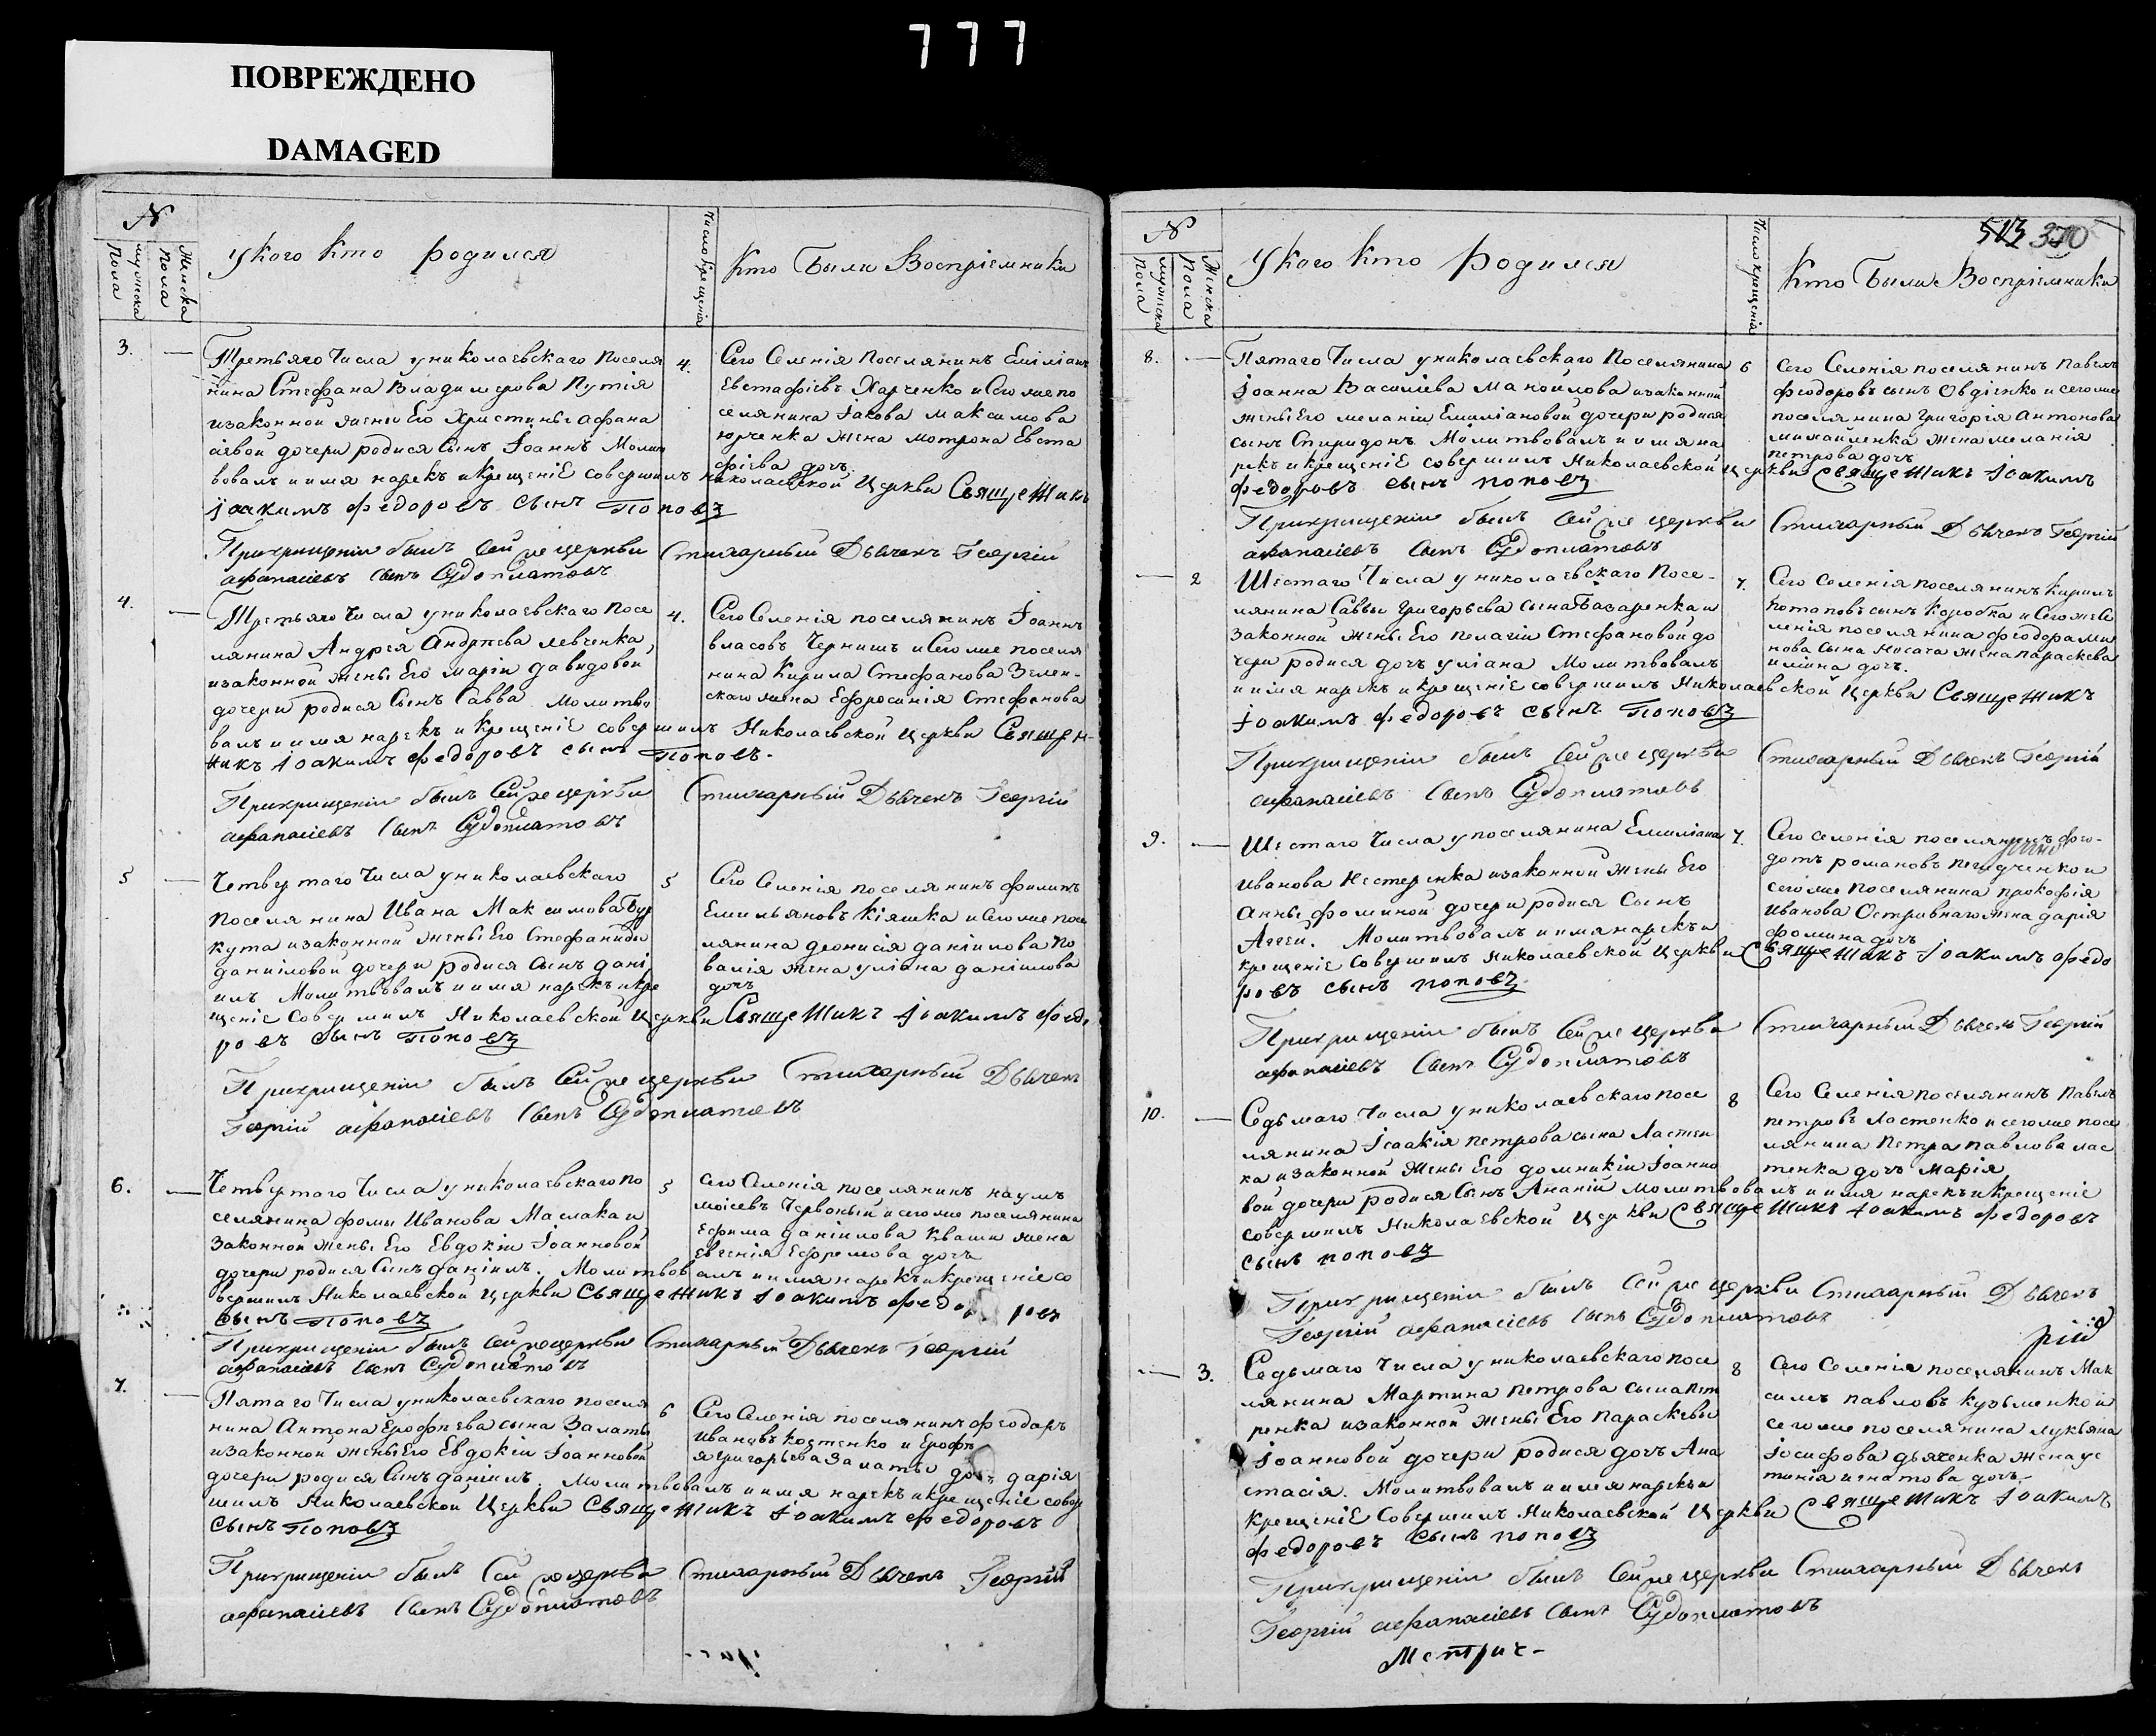 777
ПОВРЕЖДЕНО
DAMAGED
N
мужеска пола
Женска пола
У кого кто родился
Число крещенія
Кто Были Воспріемники
3.
Третьяго Числа у николаевскаго поселя
нина Стефана Владимерова Путія
и законной жены Его Христины афана
сіевой дочери родися Сынъ Іоаннъ Молит
вовалъ и имя нарекъ и крещеніЕ совершилъ николаевской Церкви Священникъ
іоакимъ федоровъ сынъ Поповъ
4.
Сего Селенія поселянинъ Емиліанъ
Евстафіевъ Харченко и Сего же по
селянина Іакова максимова
юрченка жена мотрона Евста
фіева дочь
При крищеніи былъ Сей же церкви Стихарный Дьячекъ Георгій
афанасіевъ сынъ Судоплатовъ
4.
Третьяго Числа у николаевскаго посе
лянина Андрея Андреева левченка
и законной жены Его маріи давидовой
дочери родися Сынъ Савва молитво
валъ и имя нарекъ и крещеніЕ совершилъ Николаевской Церкви Священ-
никъ іоакимъ федоровъ сынъ Поповъ.
4.
Сего Селенія поселянинъ Іоаннъ
власовъ Чернишъ и Сего же поселя
нина Кирила Стефанова Зелен-
скаго жена Ефросинія Стефанова
При крищеніи былъ Сей же церкви Стихарный Дьячекъ Георгій
афанасіевъ сынъ Судоплатовъ
5
Четвертаго Числа у николаевскаго
поселянина Ивана Максимова Бур
кута и законной жены Его Стефаниды
даниловой дочери родися Сынъ дані
илъ Молитвовалъ и имя нарекъ и кре
щеніе Совершилъ Николаевской Церкви Священникъ іоакимъ федо
ровъ сынъ Поповъ
5
Сего Селенія поселянинъ филипъ
Емильяновъ Кіяшка и Сего же посе
лянина деонисія даніилова По
валія жена уліана даніилова
дочь
При крищеніи былъ Сей же церкви Стихарный Дьячекъ
Георгій афанасіевъ сынъ Судоплатовъ
6.
Четвертаго Числа у николаевскаго по
селянина фомы Иванова Маслака и
Законной жены Его Евдокіи Іоанновой
дочери родися Сынъ даніилъ. Молитвовалъ и имя нарекъ и крещеніе со
вершилъ Николаевской церкви Священникъ іоакимъ федоровъ
сынъ Поповъ
5
Сего Селенія поселянинъ наумъ
моісеевъ Червоный и сего же поселянина
Ефима даніилова Кваши жена
Евгенія Ефремова дочь
При крищеніи былъ Сей же церкви Стихарный Дьячекъ Георгій
афанасіевъ сынъ Судоплатовъ
7.
Пятаго Числа у николаевскаго поселя
нина Антона Ерофеева сына Залаты
и законной жены Его Евдокіи Іоанновой
дочери родися Сынъ даніилъ. Молитвовалъ и имя нарекъ и крещеніе совер
шилъ Николаевской Церкви Священникъ іоакимъ федоровъ
сынъ Поповъ
6
Сего Селенія поселянинъ феодоръ
Ивановъ Костенко и Ерофе
я григорьева Залаты дочь дарія
При крищеніи былъ Сей же церкви Стихарный Дьячекъ Георгій
афанасіевъ сынъ Судоплатовъ
N
мужеска пола
Женска пола
У кого кто родился
Число крещенія
513 370
Кто Были Воспріемники
8.
Пятаго Числа у николаевскаго Поселянина
Іоанна Василіева Манойлова и законной
жены Его меланіи Емиліановой дочери родися
сынъ Спиридонъ Молитвовалъ и имя на
рекъ и крещеніЕ совершилъ Николаевской Церкви Священникъ іоакимъ
федоровъ сынъ поповъ
6
Сего Селенія поселянинъ павелъ
феодоровъ сынъ Овдіенко и сего же
поселянина григорія антонова
михайленка жена меланія
петрова дочь
При крищеніи былъ Сей же церкви Стихарный Дьячекъ Георгій
афанасіевъ сынъ Судоплатовъ
2
Шестаго Числа у николаевскаго Посе-
лянина Саввы григорьева сына Базаренка и
законной жены Его пелагіи Стефановой до
чери родися дочь уліана Молитвовалъ
и имя нарекъ и крещеніЕ совершилъ Николаевской Церкви Священникъ
іоакимъ федоровъ сынъ Поповъ
7.
Сего Селенія поселянинъ Кирилъ
потаповъ сынъ Коробка и Сего же Се
ленія поселянина феодора ми
нова сына Носача жена параскева
иліина дочь.
При крищеніи былъ Сей же церкви Стихарный Дьячекъ Георгій
афанасіевъ сынъ Судоплатовъ
9.
Шестаго Числа у поселянина Емиліана
Иванова Нестеренка и законной жены Его
Анны фоминой дочери родися Сынъ
Аггей. Молитвовалъ и имя нарекъ и
крещеніЕ Совершилъ Николаевской Церкви Священникъ іоакимъ федо
ровъ сынъ поповъ
7.
Сего селенія поселянинъ фео-
дотъ романовъ и
сего же поселянина прокофія
Иванова Островнаго жена дарія
фомина дочь
При крищеніи былъ Сей же церкви Стихарный Дьячекъ Георгій
афанасіевъ сынъ Судоплатовъ
10.
Седьмаго Числа у николаевскаго посе
лянина Ісаакія петрова сына Ластен
ка и законной Жены Его домникіи Іоанно
вой дочери родися Сынъ Ананій Молитвовалъ и имя нарекъ и крещеніе
совершилъ Николаевской Церкви Священникъ іоакимъ федоровъ
сынъ поповъ
8
Сего Селенія поселянинъ Павелъ
петровъ Ластенко и сего же посе
лянина Петра павлова лас
тенка дочь Марія
При крищеніи былъ Сей же церкви Стихарный Дьячекъ
Георгій афанасіевъ сынъ Судоплатовъ
рій
3.
Седьмаго Числа у николаевскаго посе
лянина Мартина петрова сына пет
ренка и законной жены Его параскевы
Іоанновой дочери родися дочь Ана
стасія. Молитвовалъ и имя нарекъ и
крещеніЕ Совершилъ Николаевской Церкви Священникъ іоакимъ
федоровъ сынъ поповъ
8
Сего Селенія поселянинъ Мак
симъ павловъ кузьменко и
сего же поселянина лукьяна
Іосифова дьяченка жена ус
тинія игнатова дочь
При крищеніи былъ Сей же церкви Стихарный Дьячекъ
Георгій афанасіевъ сынъ Судоплатовъ
Метрич-